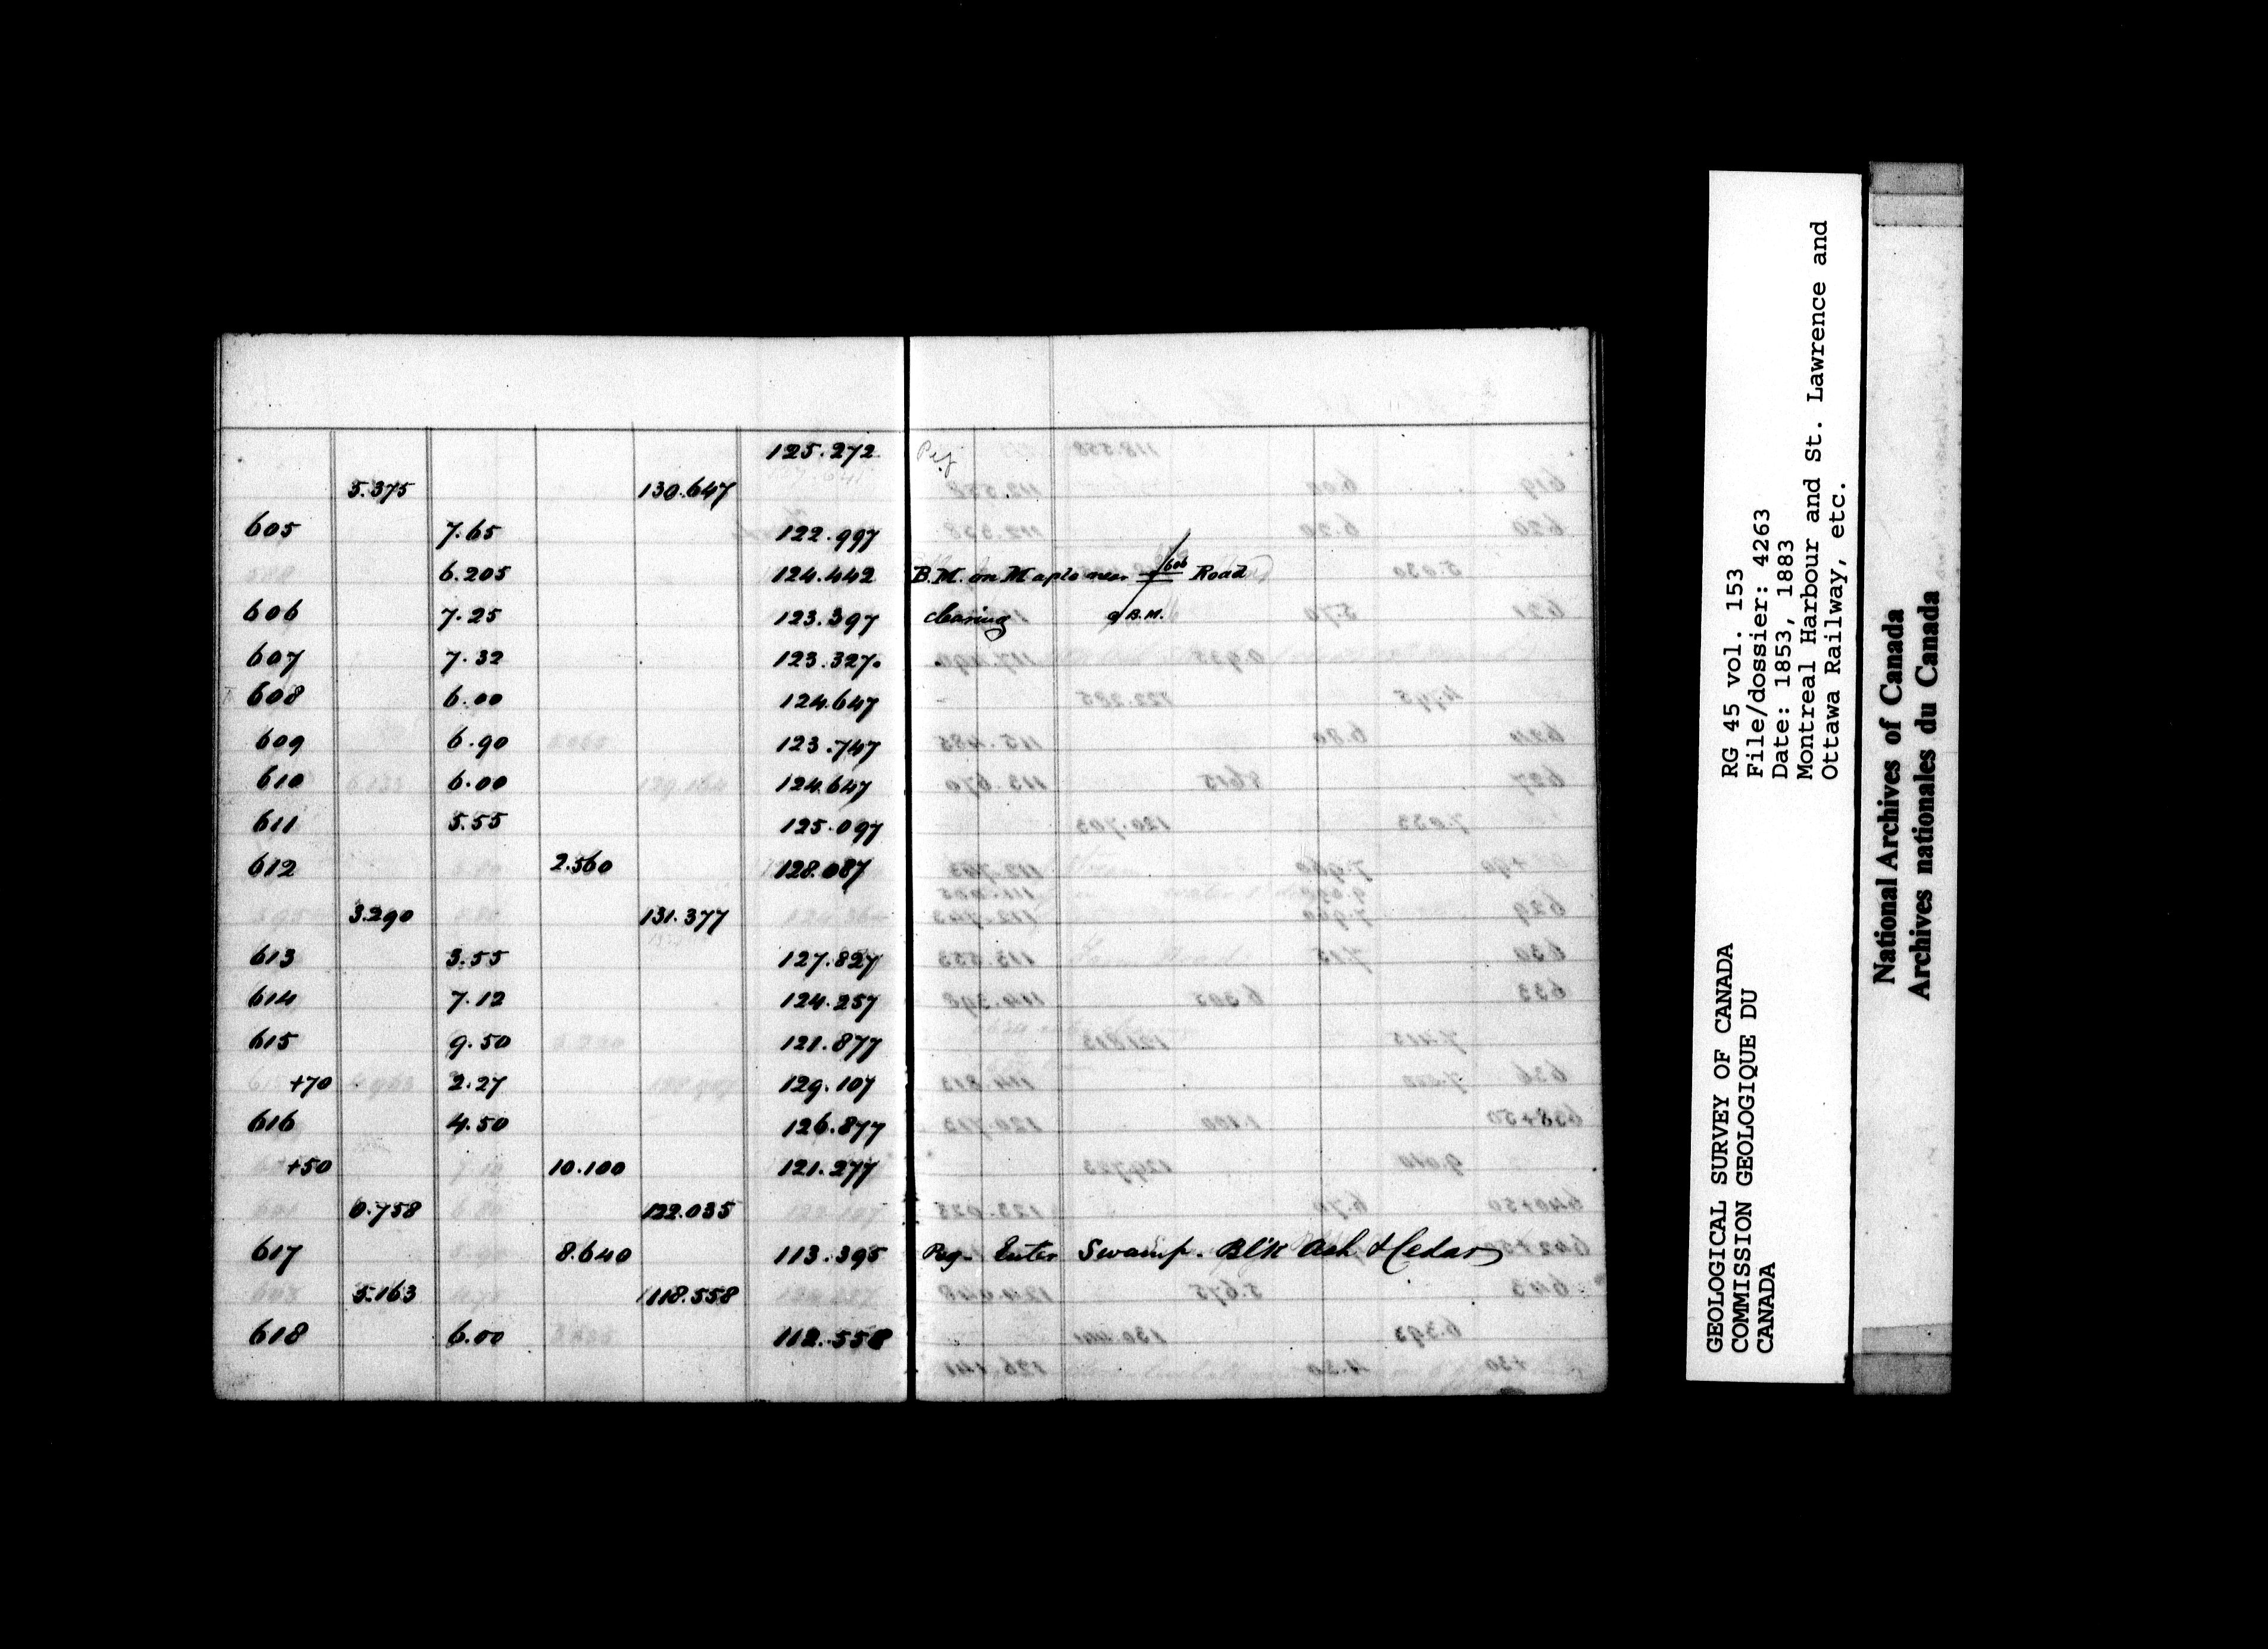 125.272 Peg
5.375 130.647
605 7.65 122.997
6.205 124.442 B.M. on Maple near 606 Road
606 7.25 123.397 Clearing B.M.
607 7.32 123.327
608 6.00 124.647
609 6.90 123.747
610 6.00 124.647
611 5.55 125.097
612 2.560 128.087
3.290 131.377
613 3.55 127.827
614 7.12 124.257
615 9.50 121.877
+70 2.27 129.107
616 4.50 126.877
+50 10.100 121.277
0.758 122.035
617 8.640 113.395 Peg - Enter Swamp. Bl'k Ash & Cedar
5.163 118.558
618 6.00 112.558
GEOLOGICAL SURVEY OF CANADA
COMMISSION GEOLOGIQUE DU
CANADA
RG 45 vol. 153
File/dossier: 4263
Date: 1853, 1883
Montreal Harbour and St. Lawrence and
Ottawa Railway, etc.
National Archives of Canada
Archives nationales du Canada